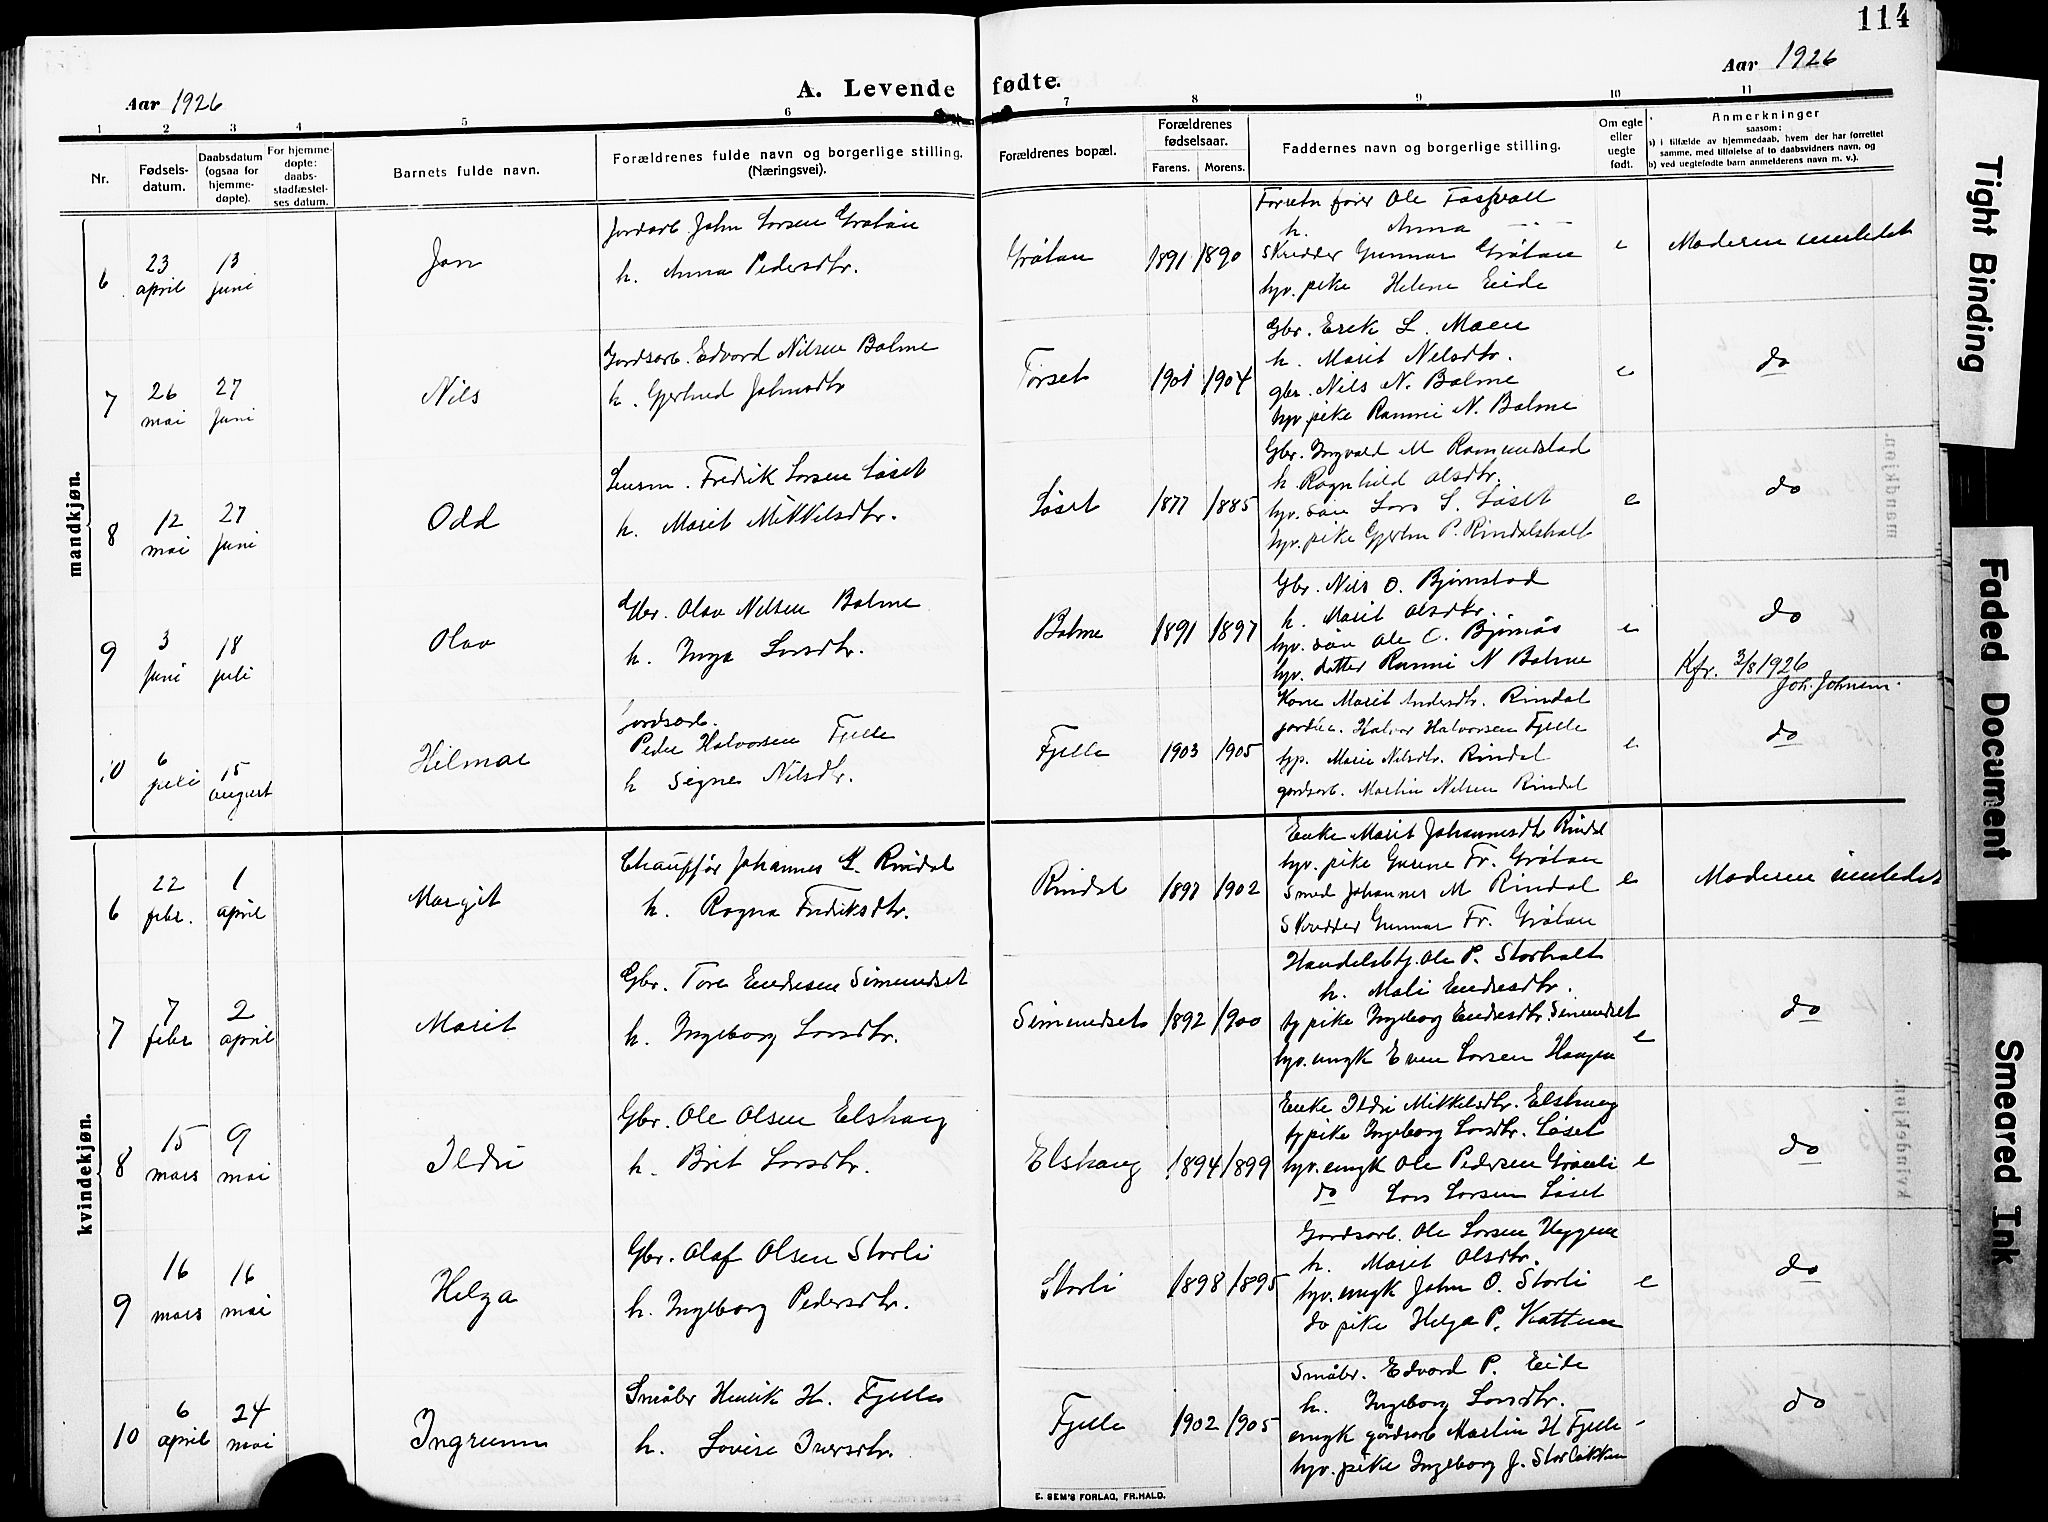 114
Aar 1926
A. Levende fødte.
Aar 1926
1 2 3 4 5 6 7 8 9 10 11
Nr.
Fødsels-
datum.
Daabsdatum
(ogsaa for
hjemme-
døpte).
For hjemme-
døpte:
daabs-
stadfæstel-
ses datum.
Barnets fulde navn.
Forældrenes fulde navn og borgerlige stilling.
(Næringsvei).
Forældrenes bopæl.
Forældrenes
fødselsaar.
Farens. Morens.
Faddernes navn og borgerlige stilling.
Om egte
eller
uegte
født.
Anmerkninger
saasom:
a) i tilfælde av hjemmedaab, hvem der har forrettet
samme, med tilføielse af to daabsvidners navn, og
b) ved uegtefødte barn anmelderens navn m. v.).
mandkjøn.
6
23 april
13 juni
Jon
Jordarb. John Larsen Grøtan
h. Anna Pedersdtr.
Grøtan
1891 1890
Ole
h. Anna
Skredder Gunnar Grøtan
hjv. pike Helene Eide
e
Moderen innledet
7
26 mai
27 juni
Nils
Gardsarb. Edvard Nilsen Bolme
h. Gjertrud Johnsdtr
Torset
1901 1904
Gbr. Erik L. Moen
h. Marit Nelsdtr.
gbr. Nils N. Bolme
hjv. pike Rannei N. Bolme
e
do
8
12 mai
27 juni
Odd
Lensm. Fredrik Larsen Løset
h. Marit Mikkelsdtr.
Løset
1877 1885
Gbr. Ingvald M Romundstad
h. Ragnhild Olsdtr.
hjv. søn Lars L. Løset
hjv. pike P. Rindalsholt
e
do
9
3 juni
18 juli
Olav
Gbr. Olav Nilsen Bolme
h. Inga Larsdtr.
Bolme
1891 1897
Gbr. Nils O. Bjørnstad
h. Marit Olsdtr.
hjv. søn Ole O. Bjørnås
hjv. datter Rannei N Bolme
e
do
Kfr. 3/8 1926
Joh. Johnsen.
10
6 juli
15 august
Hilmar
Gardsarb.
Peder Halvorsen Fjelle
h Signe Nilsdtr.
Fjelle
1903 1905
Kone Marit Andersdtr. Rindal
Halvor Halvorsen Fjelle
hjp. Marie Nilsdtr. Rindal
gardsarb. Martin Nilsen Rindal
e
do
kvindekjøn.
6
22 febr.
1 april
Margit
Chauffør Johannes L. Rindal
h. Ragna Fredriksdtr.
Rindal
1897 1902
Enke Marit Johannesdtr Rindal
hjv. pike Gurene Fr. Grøtan
Smed Johannes M Rindal
Skredder Gunnar Fr. Grøtan
e
Moderen innledet
7
7 febr
2 april
Marit
Gbr. Tore Endresen Simundset
h. Ingeborg Larsdtr.
Simundset
1892 1900
Handelsbtj. Ole P. Storholt
h. Mali Endresdtr.
tj pike Ingeborg Endresdtr. Simundset
hjv. ungk Even Larsen Haugen
e
do
8
15 mars
9 mai
Ildri
Gbr. Ole Olsen Elshaug
h. Brit Larsdtr.
Elshaug
1894 1899
Enke Ildri Mikkelsdtr. Elshaug
tj pike Ingeborg Larsdtr. Løset
hjv. ungk Ole Pedersen Grønli
do Lars Larsen Løset
e
do
9
16 mars
16 mai
Helga
Gbr. Olaf Olsen Storli
h. Ingeborg Pedersdtr.
Storli
1898 1895
Gardsarb. Ole Larsen Uggen
h. Marit Olsdtr.
hjv. ungk John O. Storli
do pike Helga P. Kattem
e
do
10
6 april
24 mai
Ingrunn
Småbr Henrik H. Fjelle
h. Lovise Iversdtr.
Fjelle
1902 1905
Småbr. Edvard P. Eide
h. Ingeborg Larsdtr.
ungk gårdsarb Martin H Fjelle
hjv. pike Ingeborg J. Storløkken
do
E. SEM'S FORLAG, FR.HALD.
Tight Binding
Faded Document
Smeared Ink